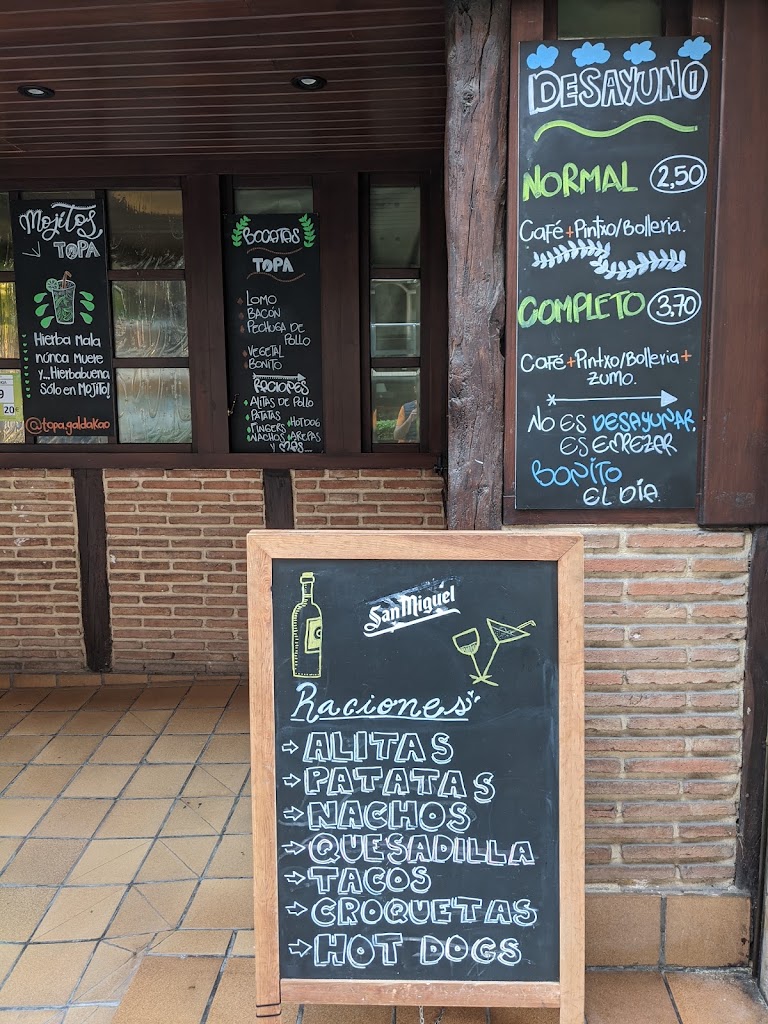 Mojitos
TOPA
Hierba Mala
núnca Muere
y...Hierbabuena
Sólo en MOJITO!
@topa.galdakao
9
20
BOCATAS
TOPA
LOMO
BACÓN
PECHUGA DE
POLLO
VEGETAL
BONITO
RACIONES
ALITAS DE POLLO
PATATAS
FINGERS HOT DOG
NACHOS AREPAS
y MÁS...
DESAYUNO
NORMAL 2,50
Café+Pintxo/Bolleria.
COMPLETO 3,70
Café+Pintxo/Bolleria+
ZUMO.
NO ES DESAYUNAR.
ES EMPEZAR
BONITO
EL DÍA.
San Miguel
Raciones
ALITAS
PATATAS
NACHOS
QUESADILLA
TACOS
CROQUETAS
HOT DOGS